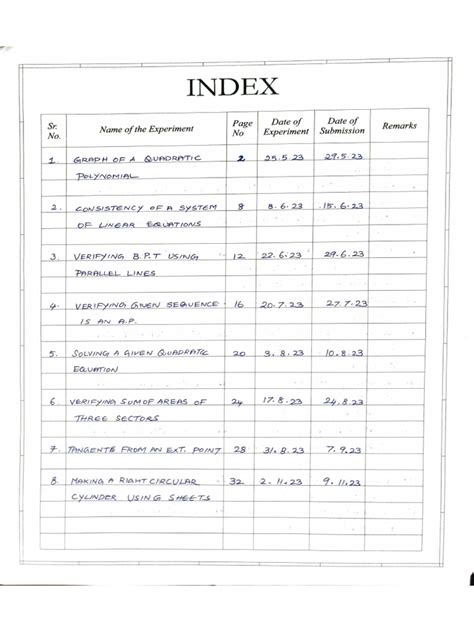 INDEX
Sr. No. Name of the Experiment Page No Date of Experiment Date of Submission Remarks
1. GRAPH OF A QUADRATIC 2 25.5.23 29.5.23
POLYNOMIAL
2. CONSISTENCY OF A SYSTEM 8 8.6.23 15.6.23
OF LINEAR EQUATIONS
3. VERIFYING B.P.T USING 12 22.6.23 29.6.23
PARALLEL LINES
4. VERIFYING GIVEN SEQUENCE 16 20.7.23 27.7.23
IS AN A.P.
5. SOLVING A GIVEN QUADRATIC 20 3.8.23 10.8.23
EQUATION
6. VERIFYING SUM OF AREAS OF 24 17.8.23 24.8.23
THREE SECTORS
7. TANGENTS FROM AN EXT. POINT 28 31.8.23 7.9.23
8. MAKING A RIGHT CIRCULAR 32 2.11.23 9.11.23
CYLINDER USING SHEETS